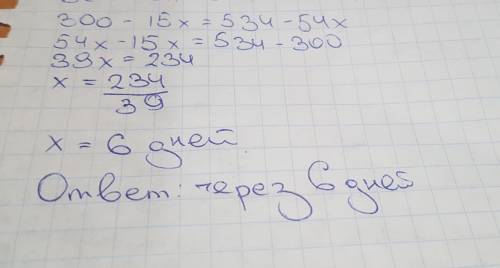 300 - 15x = 534 - 54x
54x - 15x = 534 - 300
39x = 234
x = 234
39
x = 6 дней
Ответ: через 6 дней